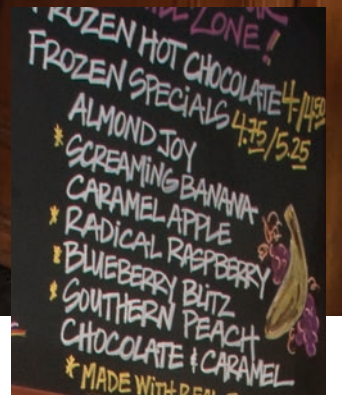 ZONE!
FROZEN HOT CHOCOLATE 4/4.50
FROZEN SPECIALS 4.75/5.25
ALMOND JOY
* SCREAMING BANANA
CARAMEL APPLE
* RADICAL RASPBERRY
* BLUEBERRY BLITZ
* SOUTHERN PEACH
CHOCOLATE & CARAMEL
* MADE WITH REAL